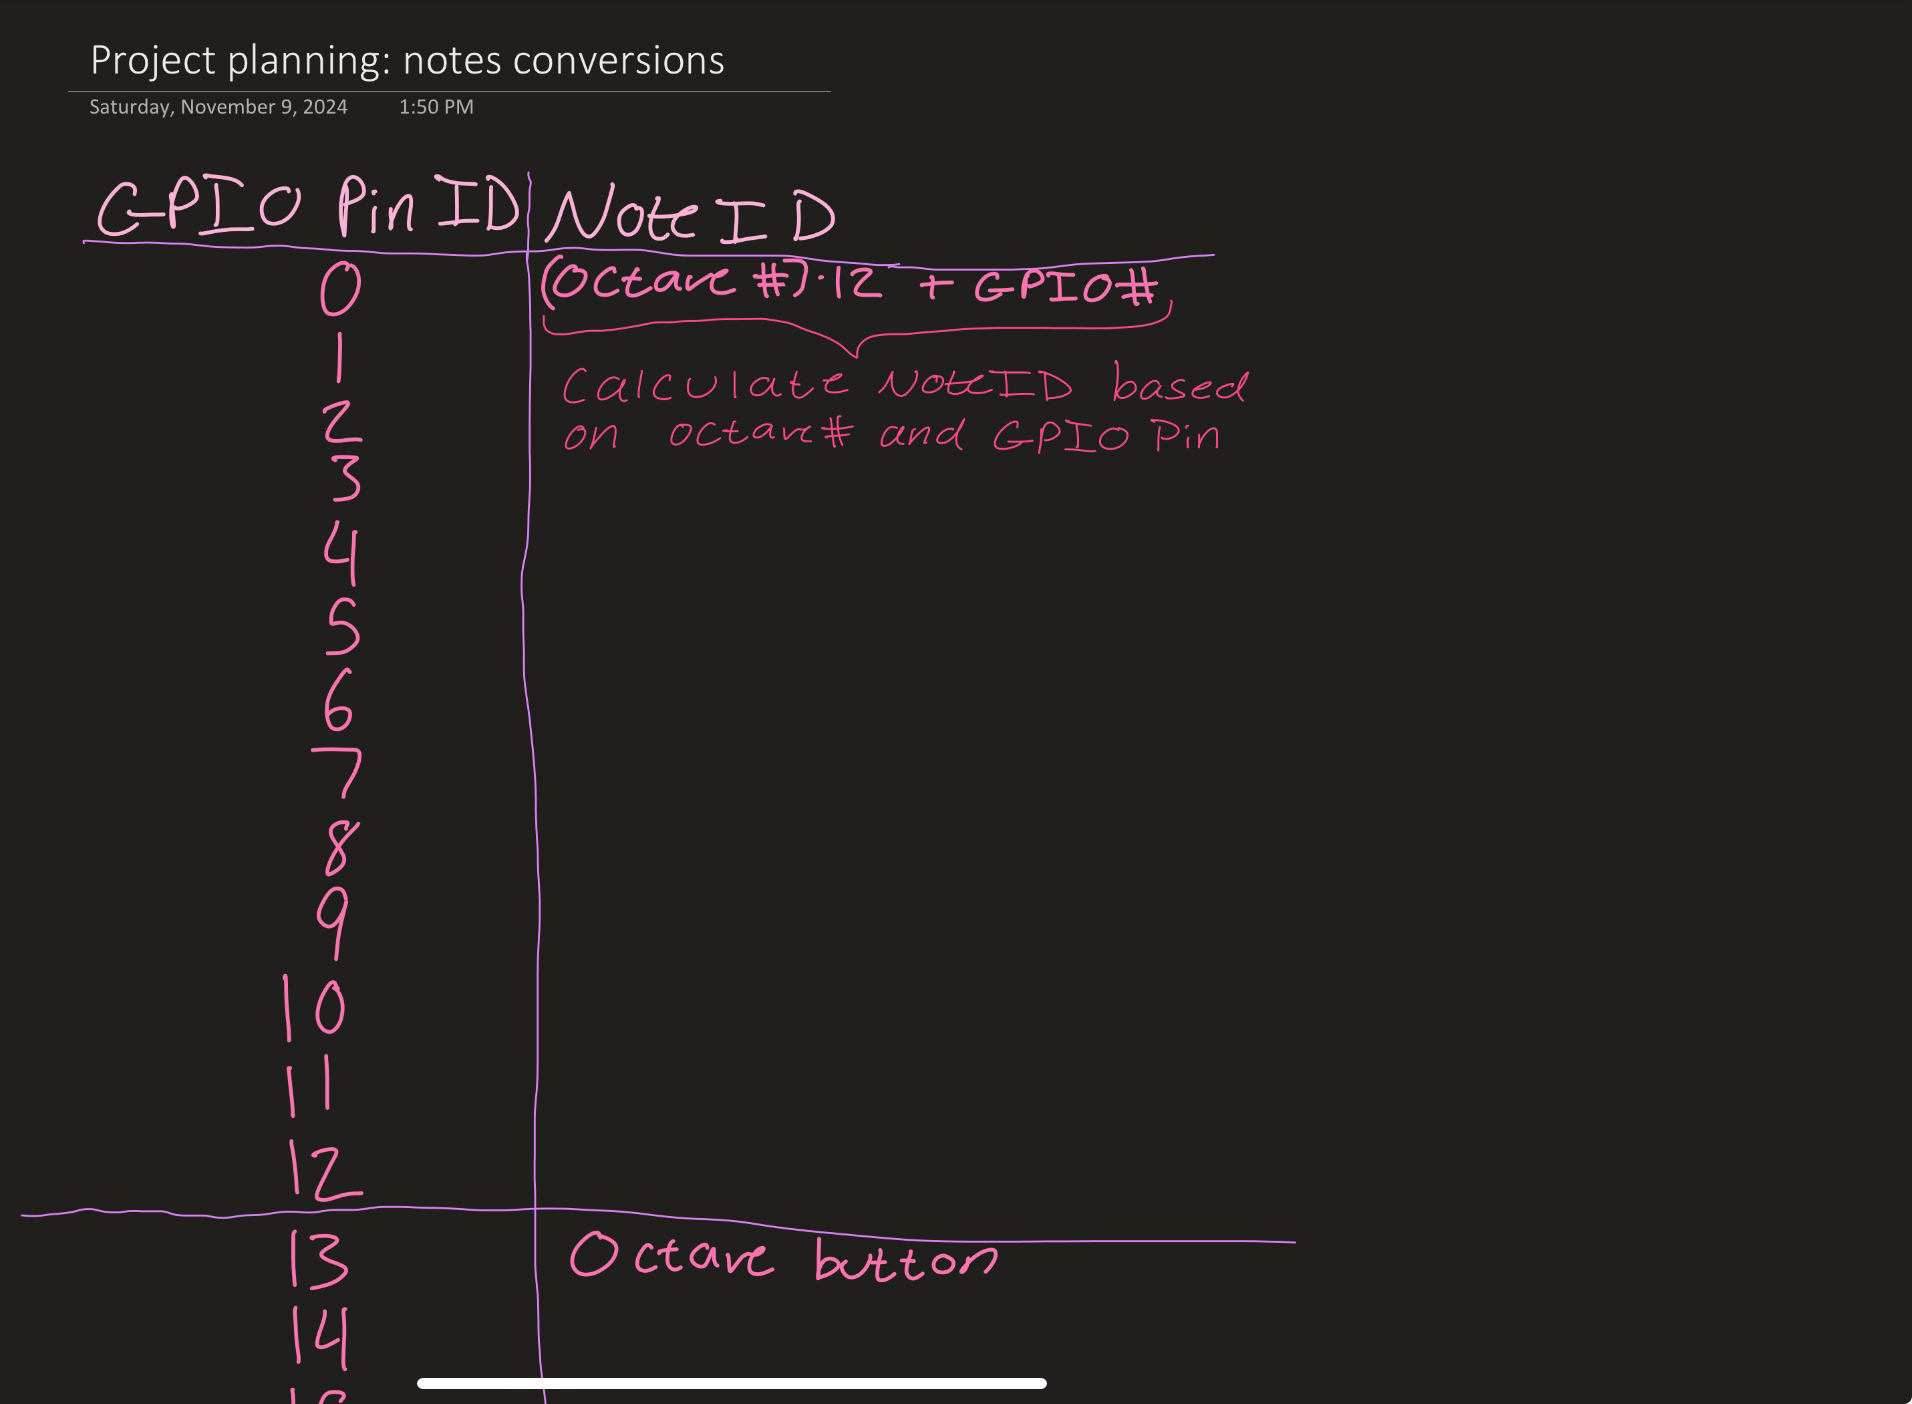 Project planning: notes conversions
Saturday, November 9, 2024 1:50 PM
GPIO Pin ID Note ID
0 (Octave #)·12 + GPIO#
1
Calculate NoteID based
2 on octave# and GPIO Pin
3
4
5
6
7
8
9
10
11
12
13 Octave button
14